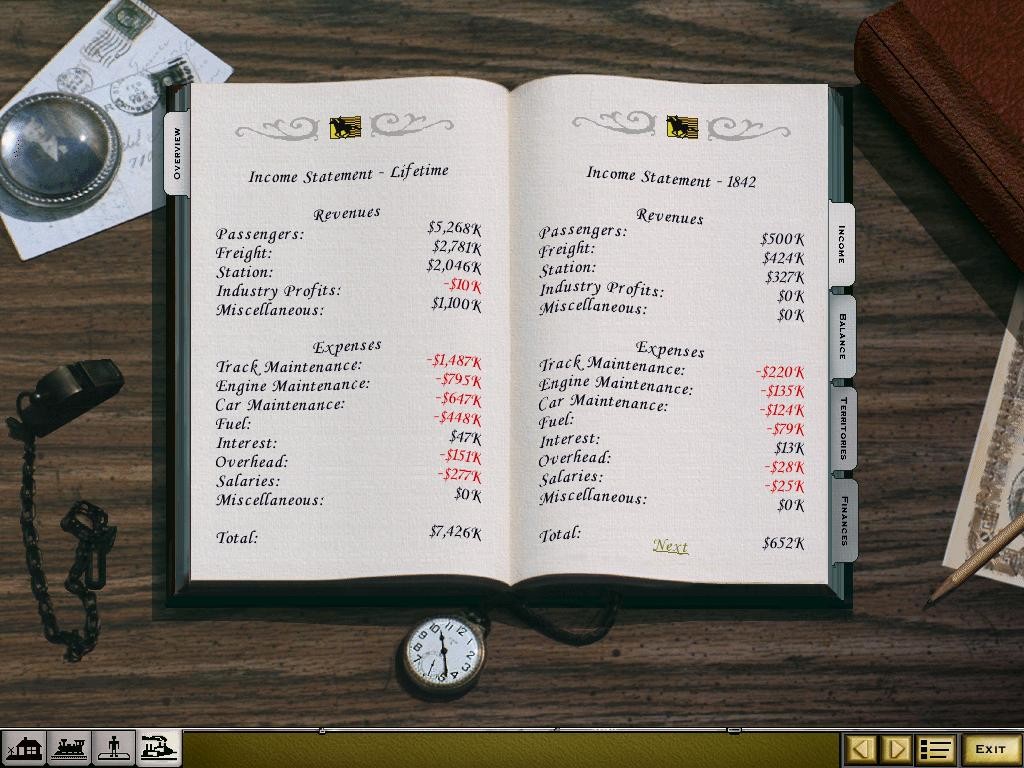 OVERVIEW
Income Statement - Lifetime
Revenues
Passengers: $5,268K
Freight: $2,781K
Station: $2,046K
Industry Profits: -$10K
Miscellaneous: $1,100K
Expenses
Track Maintenance: -$1,487K
Engine Maintenance: -$795K
Car Maintenance: -$647K
Fuel: -$448K
Interest: $47K
Overhead: -$151K
Salaries: -$277K
Miscellaneous: $0K
Total: $7,426K
Income Statement - 1842
Revenues
Passengers: $500K
Freight: $424K
Station: $327K
Industry Profits: $0K
Miscellaneous: $0K
Expenses
Track Maintenance: -$220K
Engine Maintenance: -$135K
Car Maintenance: -$124K
Fuel: -$79K
Interest: $13K
Overhead: -$28K
Salaries: -$25K
Miscellaneous: $0K
Total: $652K
Next
INCOME
BALANCE
TERRITORIES
FINANCES
EXIT